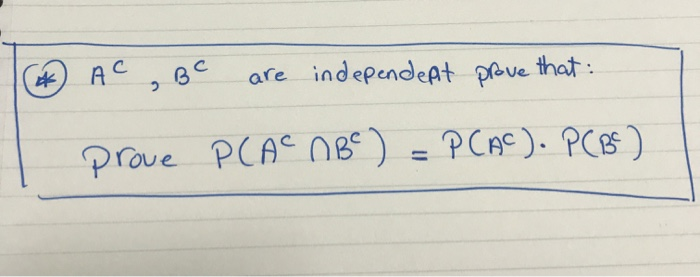 (*) Aᶜ , Bᶜ are independent prove that:
Prove P(Aᶜ ∩ Bᶜ) = P(Aᶜ). P(Bᶜ)